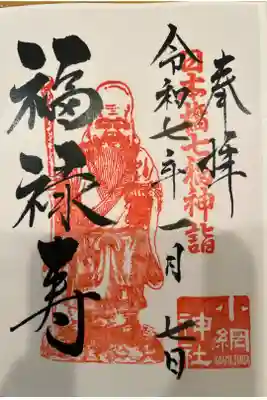 奉拝
日本橋七福神詣
令和七年一月七日
福禄寿
小網
神社